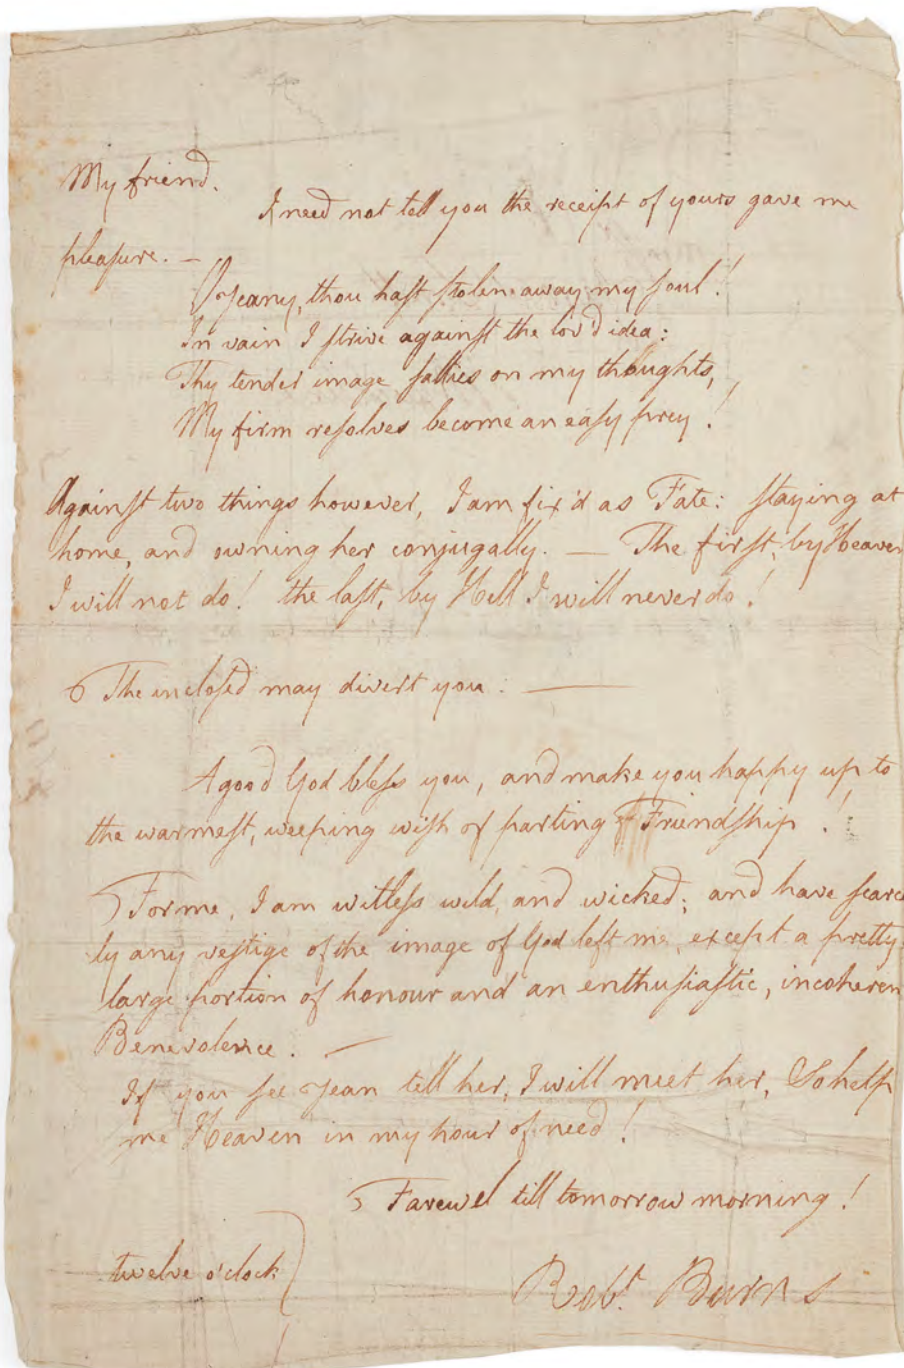 My friend.
I need not tell you the receipt of yours gave me
pleasure. —
O Jeany, thou hast stolen away my soul!
In vain I strive against the lov'd idea:
Thy tender image sallies on my thoughts,
My firm resolves become an easy prey!
Against two things however, I am fix'd as Fate: staying at
home, and owning her conjugally. — The first, by Heaven
I will not do! the last, by Hell I will never do!
The inclosed may divert you: —
A good God bless you, and make you happy up to
the warmest, weeping wish of parting Friendship!
For me, I am witless wild, and wicked; and have scarce
ly any vestige of the image of God left me, except a pretty
large portion of honour and an enthusiastic, incoheren
Benevolence. —
If you see Jean tell her, I will meet her, So help
me Heaven in my hour of need!
Farewel till tomorrow morning!
twelve o'clock
Robt. Burns